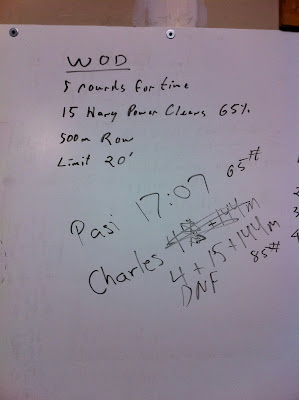 WOD
5 rounds for time
15 Hang Power Cleans 65%
500m Row
Limit 20'
Pasi 17:07 65#
Charles
4+15+144m 85#
DNF